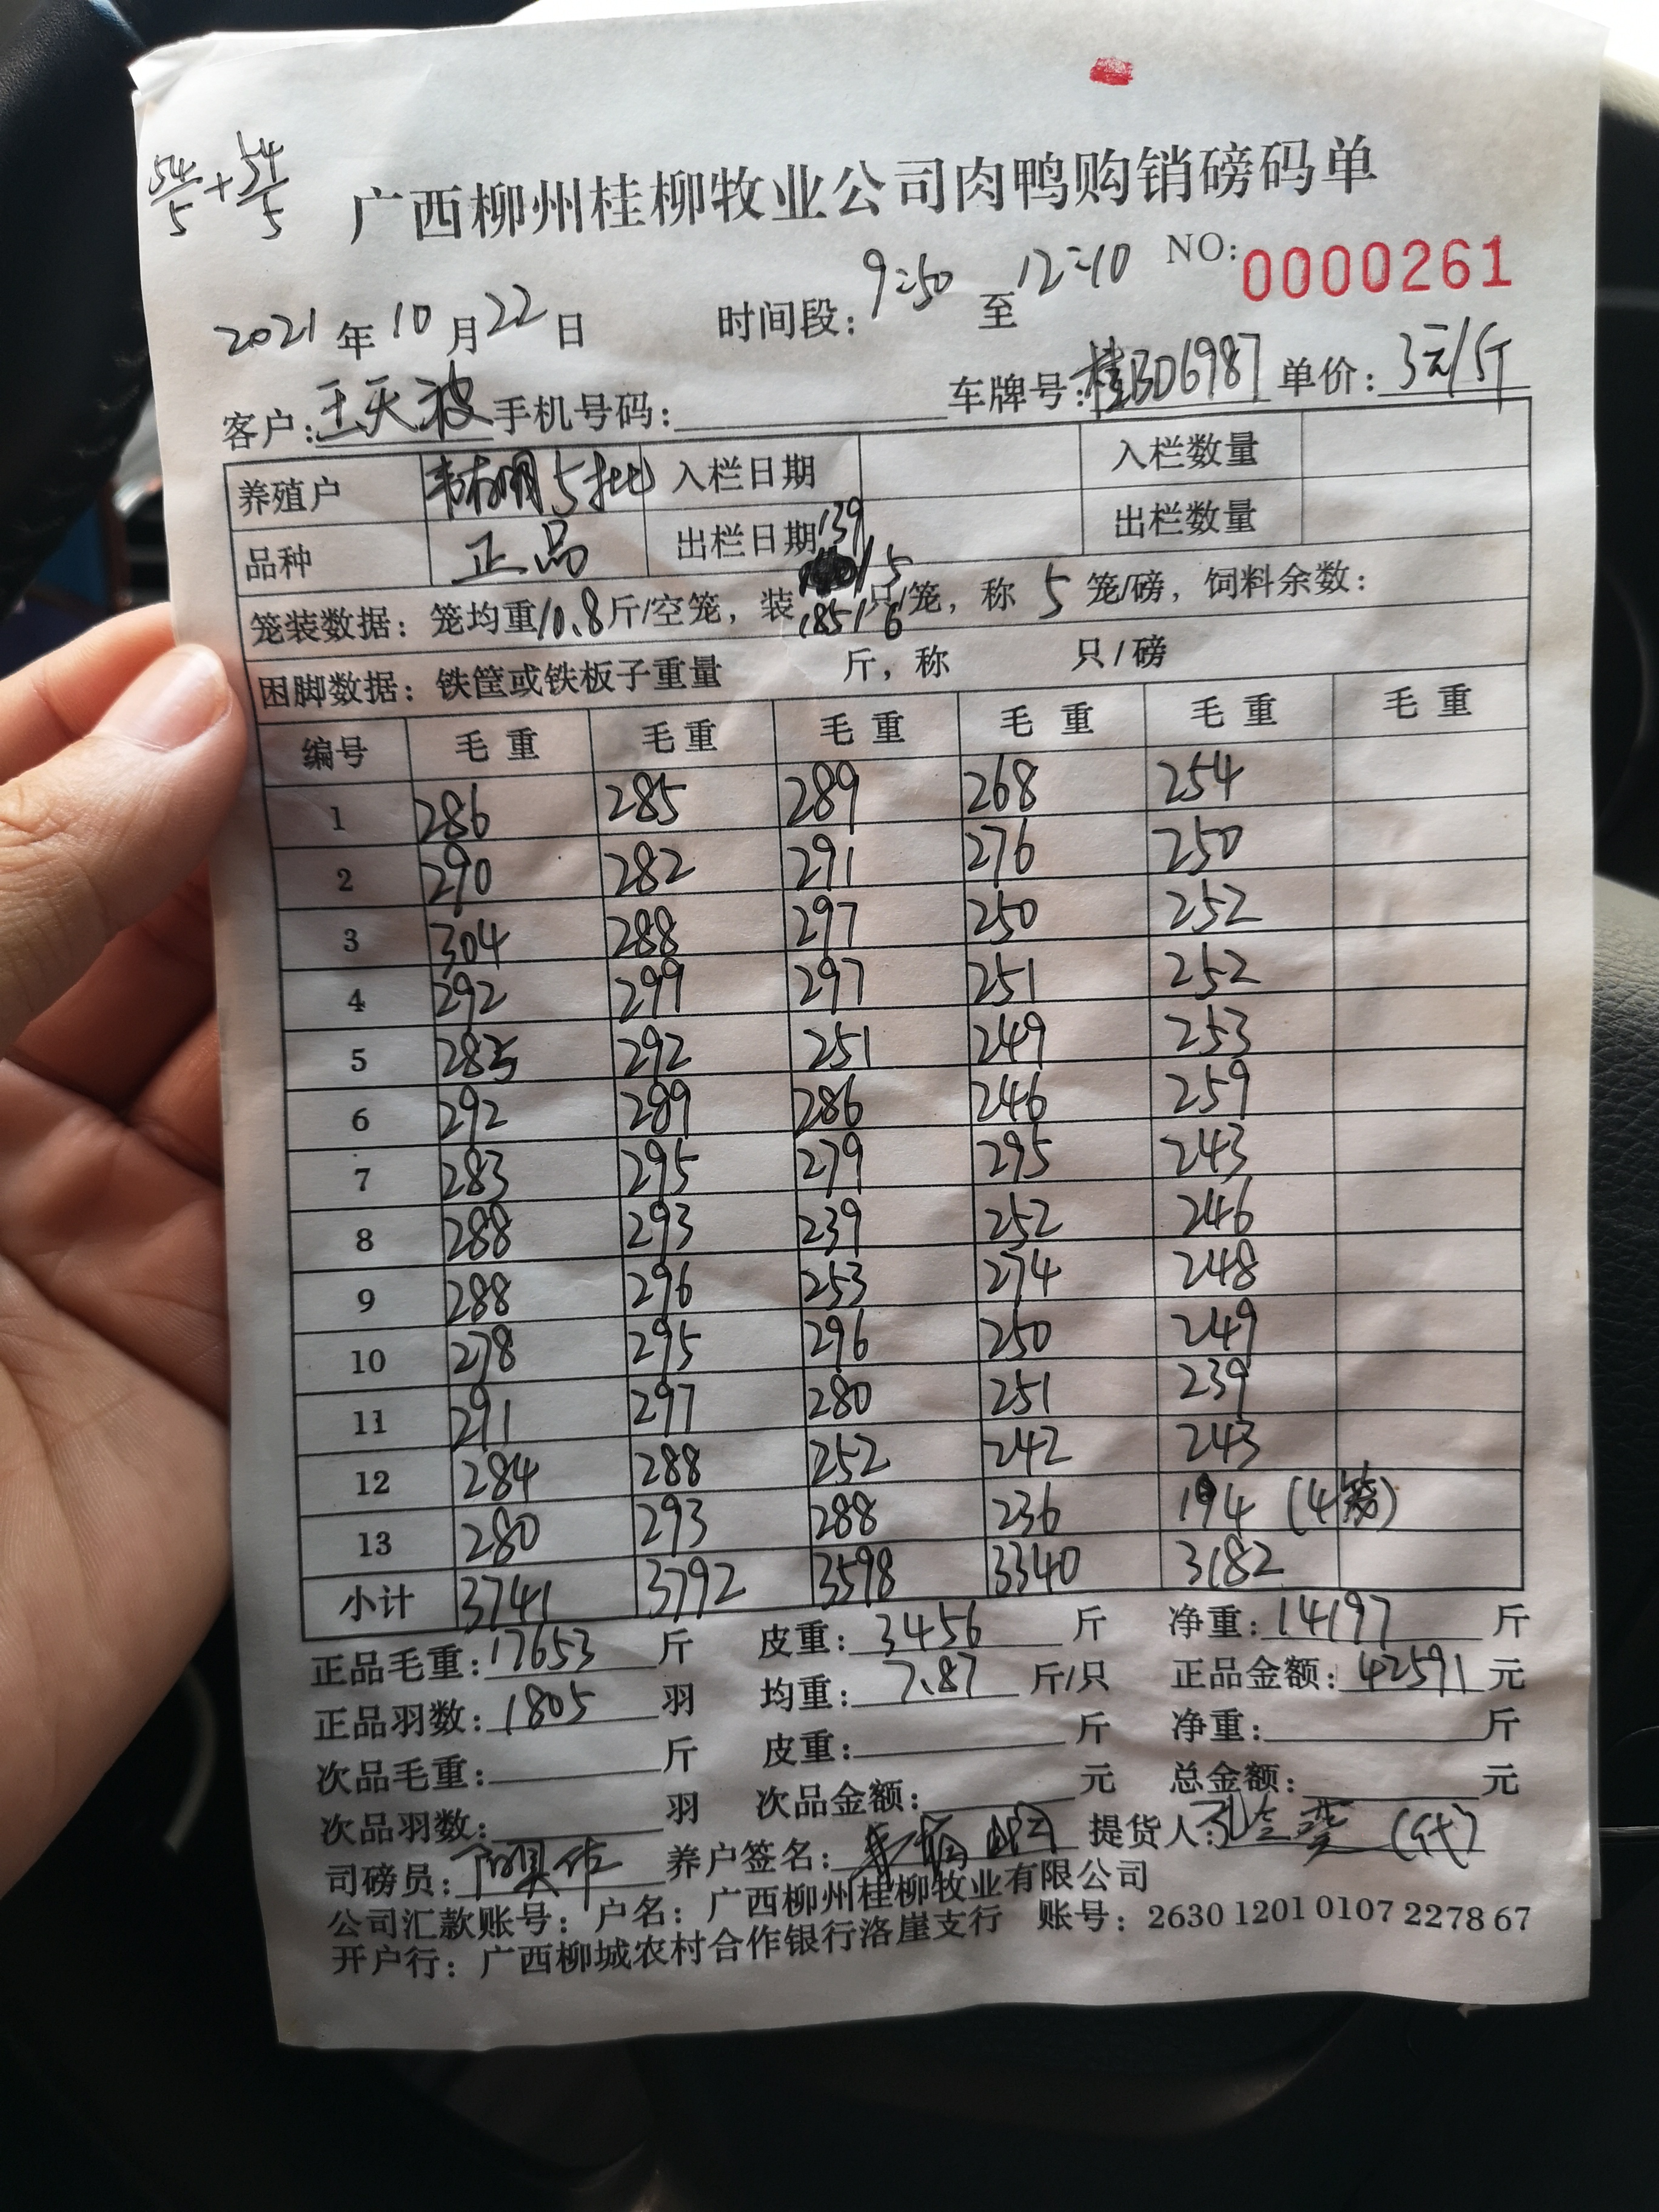 54/5+54/5
广西柳州桂柳牧业公司肉鸭购销磅码单
NO:0000261
2021年10月22日 时间段:9:50至12:10
客户:王天波 手机号码: 车牌号:桂BD6987 单价:3元/斤
养殖户 5批 入栏日期 入栏数量
品种 正品 出栏日期 出栏数量
139/5
笼装数据:笼均重10.8斤/空笼,装 只/笼,称5笼/磅,饲料余数:
185/6
困脚数据:铁筐或铁板子重量 斤,称 只/磅
编号 毛重 毛重 毛重 毛重 毛重 毛重
1 286 285 289 268 254
2 290 282 291 276 250
3 304 288 297 250 252
4 292 299 297 251 252
5 285 292 251 249 253
6 292 289 286 246 259
7 283 295 279 295 243
8 288 293 239 252 246
9 288 296 253 274 248
10 278 295 296 250 249
11 291 297 280 251 239
12 284 288 252 242 243
13 280 293 288 236 194 (4笼)
小计 3741 3792 3598 3340 3182
正品毛重:17653斤 皮重:3456斤 净重:14197斤
正品羽数:1805羽 均重:7.87斤/只 正品金额:42591元
次品毛重: 斤 皮重: 斤 净重: 斤
次品羽数: 羽 次品金额: 元 总金额: 元
司磅员: 养户签名: 提货人: (代)
公司汇款账号:户名:广西柳州桂柳牧业有限公司
开户行:广西柳城农村合作银行洛崖支行 账号:2630 1201 0107 2278 67